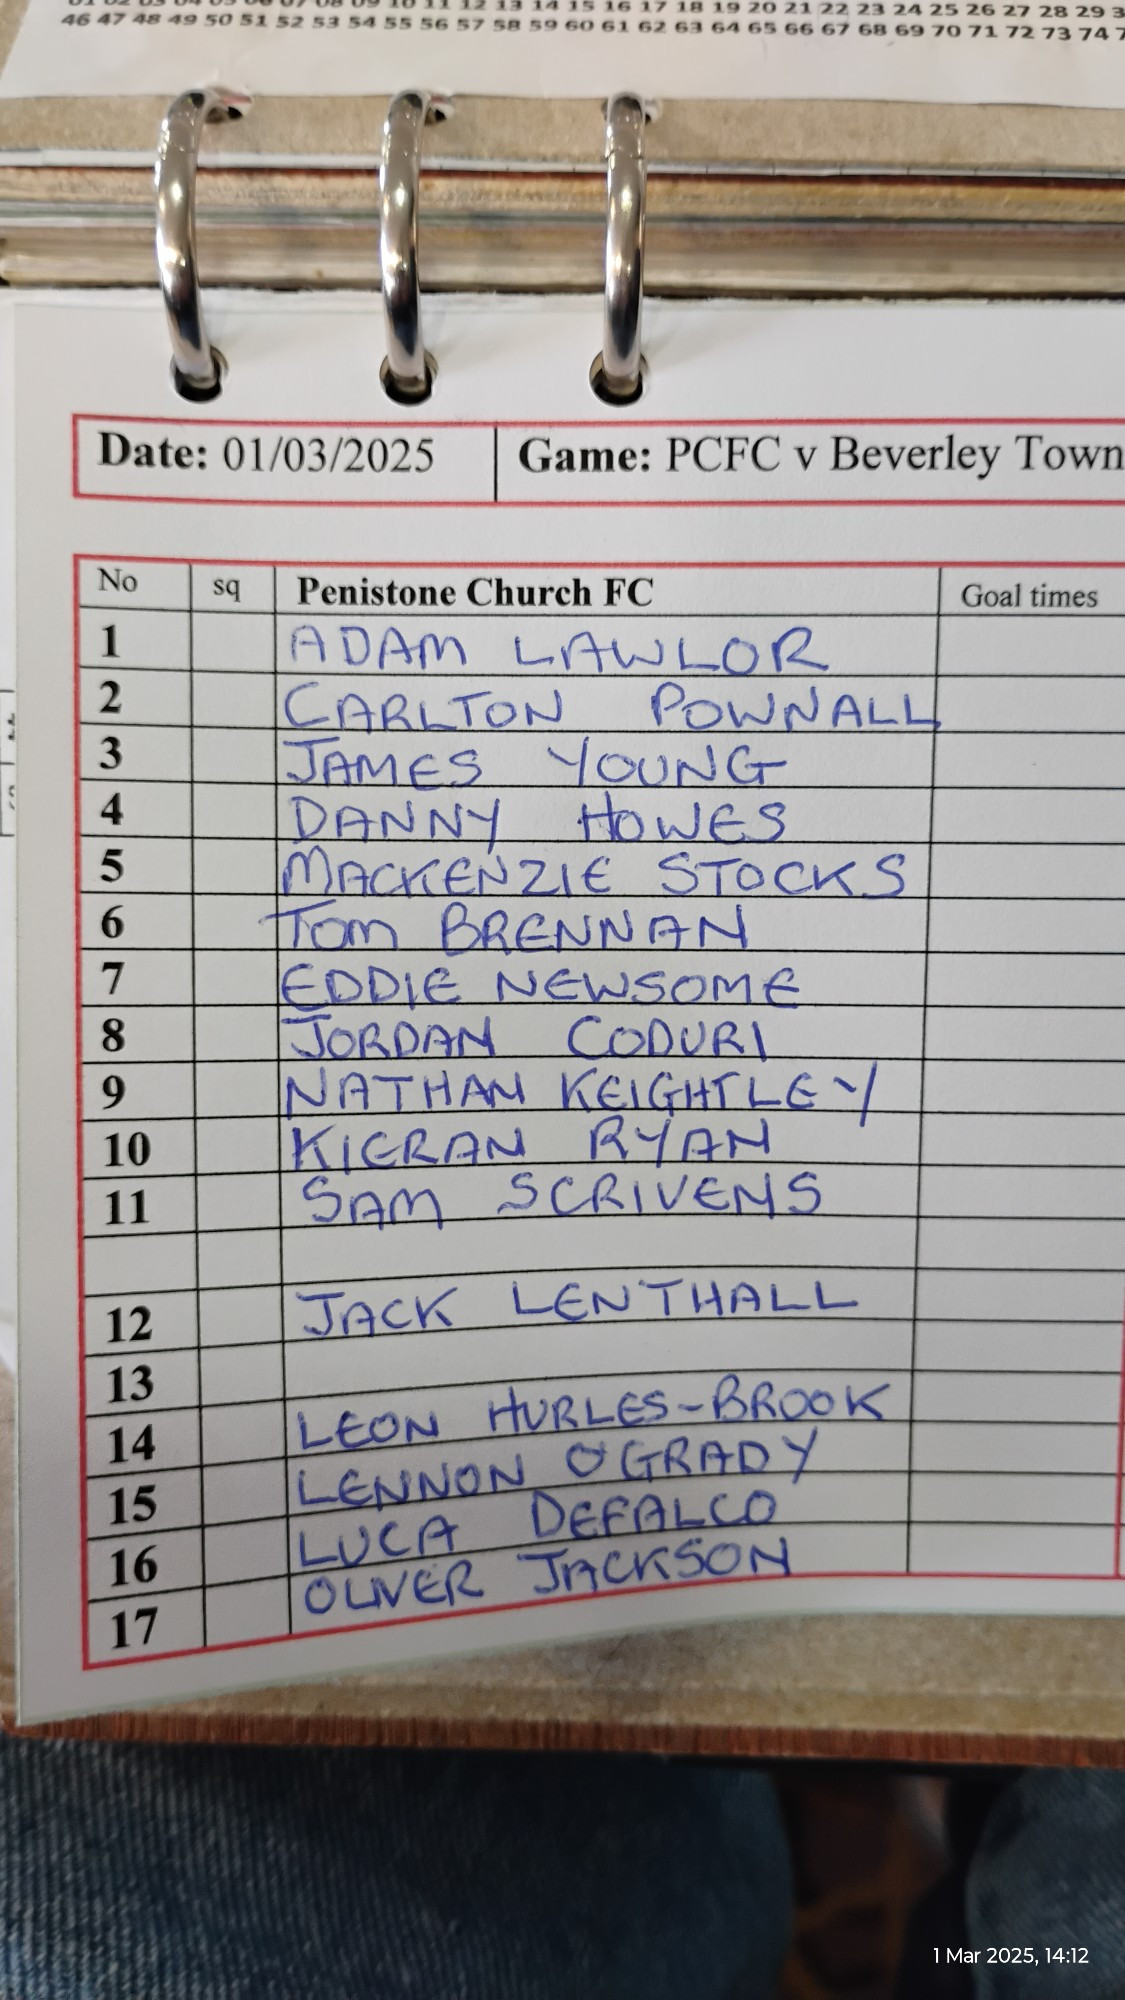 46 47 48 49 50 51 52 53 54 55 56 57 58 59 60 61 62 63 64 65 66 67 68 69 70 71 72 73 74
Date: 01/03/2025 Game: PCFC v Beverley Town
No sq Penistone Church FC Goal times
1 ADAM LAWLOR
2 CARLTON POWNALL
3 JAMES YOUNG
4 DANNY HOWES
5 MACKENZIE STOCKS
6 TOM BRENNAN
7 EDDIE NEWSOME
8 JORDAN CODURI
9 NATHAN KEIGHTLEY
10 KIERAN RYAN
11 SAM SCRIVENS
12 JACK LENTHALL
13
14 LEON HURLES-BROOK
15 LENNON O'GRADY
16 LUCA DEFALCO
17 OLIVER JACKSON
1 Mar 2025, 14:12